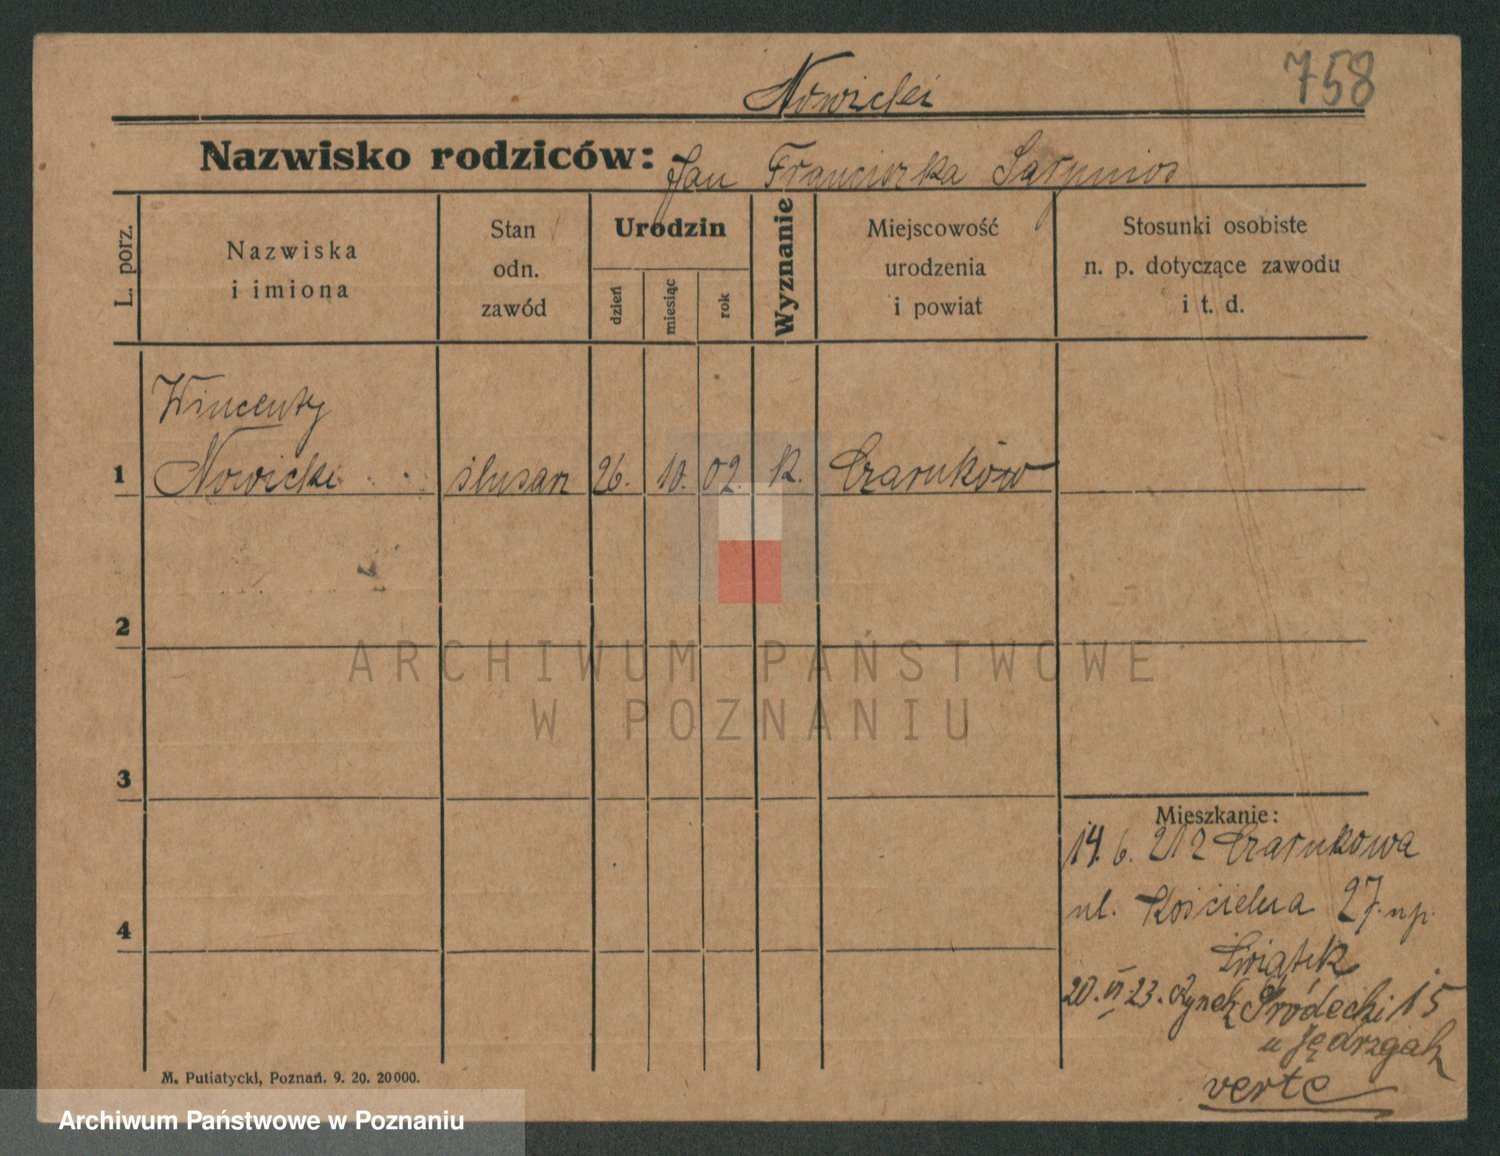 Nowicki
758
Nazwisko rodziców: Jan Franciszka
L. porz.
Nazwiska
i imiona
Stan
odn.
zawód
Urodzin
dzień
miesiąc
rok
Wyznanie
Miejscowość
urodzenia
i powiat
Stosunki osobiste
n. p. dotyczące zawodu
i t. d.
Wincenty
1 Nowicki ślusarz 26. 10. 02. k. Czarnków
2
3
4
Mieszkanie:
14. 6. 212 Czarnkowa
ul. Kościelna 27. np.
Świątek
20. VI 23. Rynek Śródecki 15
u Jędrzejak
verte
M. Putiatycki, Poznań. 9. 20. 20000.
ARCHIWUM PAŃSTWOWE
W POZNANIU
Archiwum Państwowe w Poznaniu